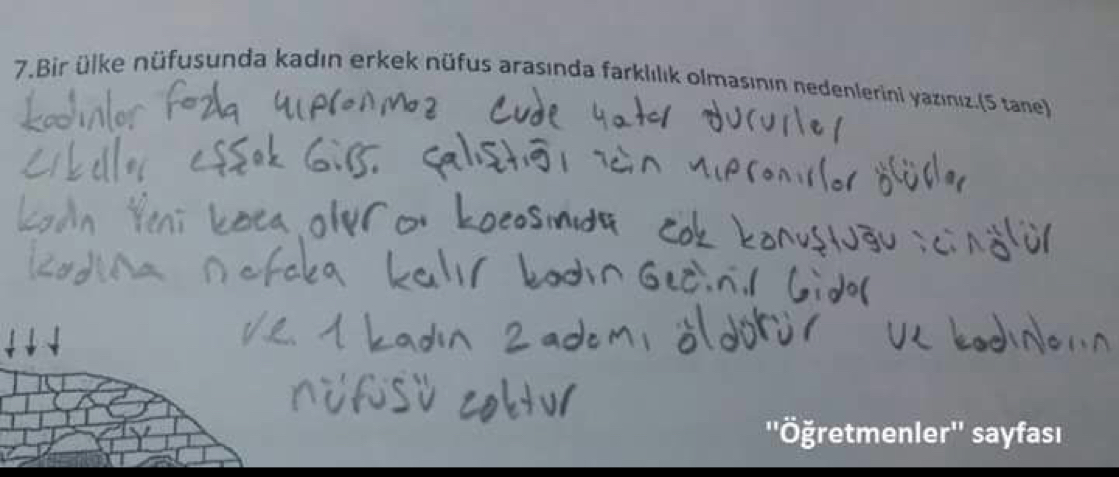 7.Bir ülke nüfusunda kadın erkek nüfus arasında farklılık olmasının nedenlerini yazınız.(5 tane)
kadınlar fazla yıpranmaz evde yatar dururlar
erkeller eşşek gibi çalıştığı için yıpranırlar ölürler
kadın yeni koca alır o kocasınıda çok konuştuğu için ölür
kadına nafaka kalır kadın geçinir gider
ve 1 kadın 2 adamı öldürür ve kadınların
nüfusü çoktur
"Öğretmenler" sayfası